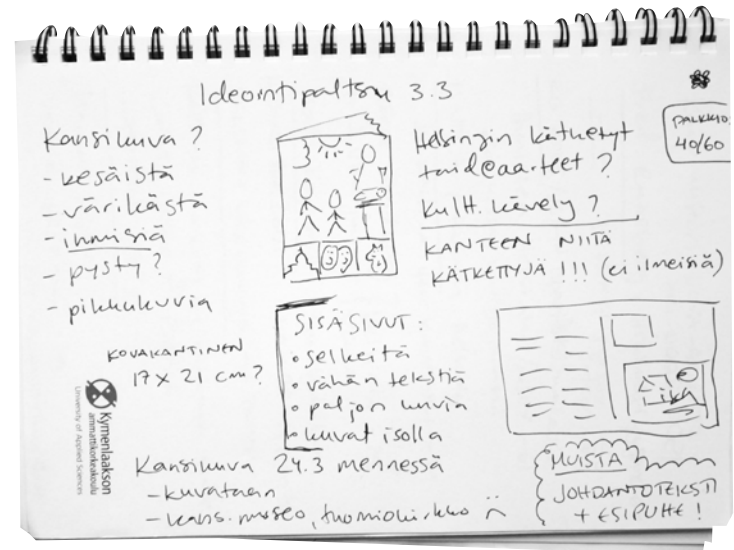 Ideointipaltsu 3.3
Kansikuva?
- kesäistä
- värikästä
- ihmisiä
- pysty?
- pikkukuvia
Helsingin kätketyt
taideaarteet?
Kult. kävely?
KANTEEN NIITÄ
KÄTKETTYJÄ!!! (ei ilmeisiä)
PALKKIO:
40/60
KOVAKANTINEN
17 x 21 cm?
SISÄSIVUT:
• selkeitä
• vähän tekstiä
• paljon kuvia
• kuvat isolla
Kymenlaakson
ammattikorkeakoulu
University of Applied Sciences
Kansikuva 24.3 mennessä
- kuvataan
- kans. museo, tuomiokirkko
MUISTA
JOHDANTOTEKSTI
+ ESIPUHE!